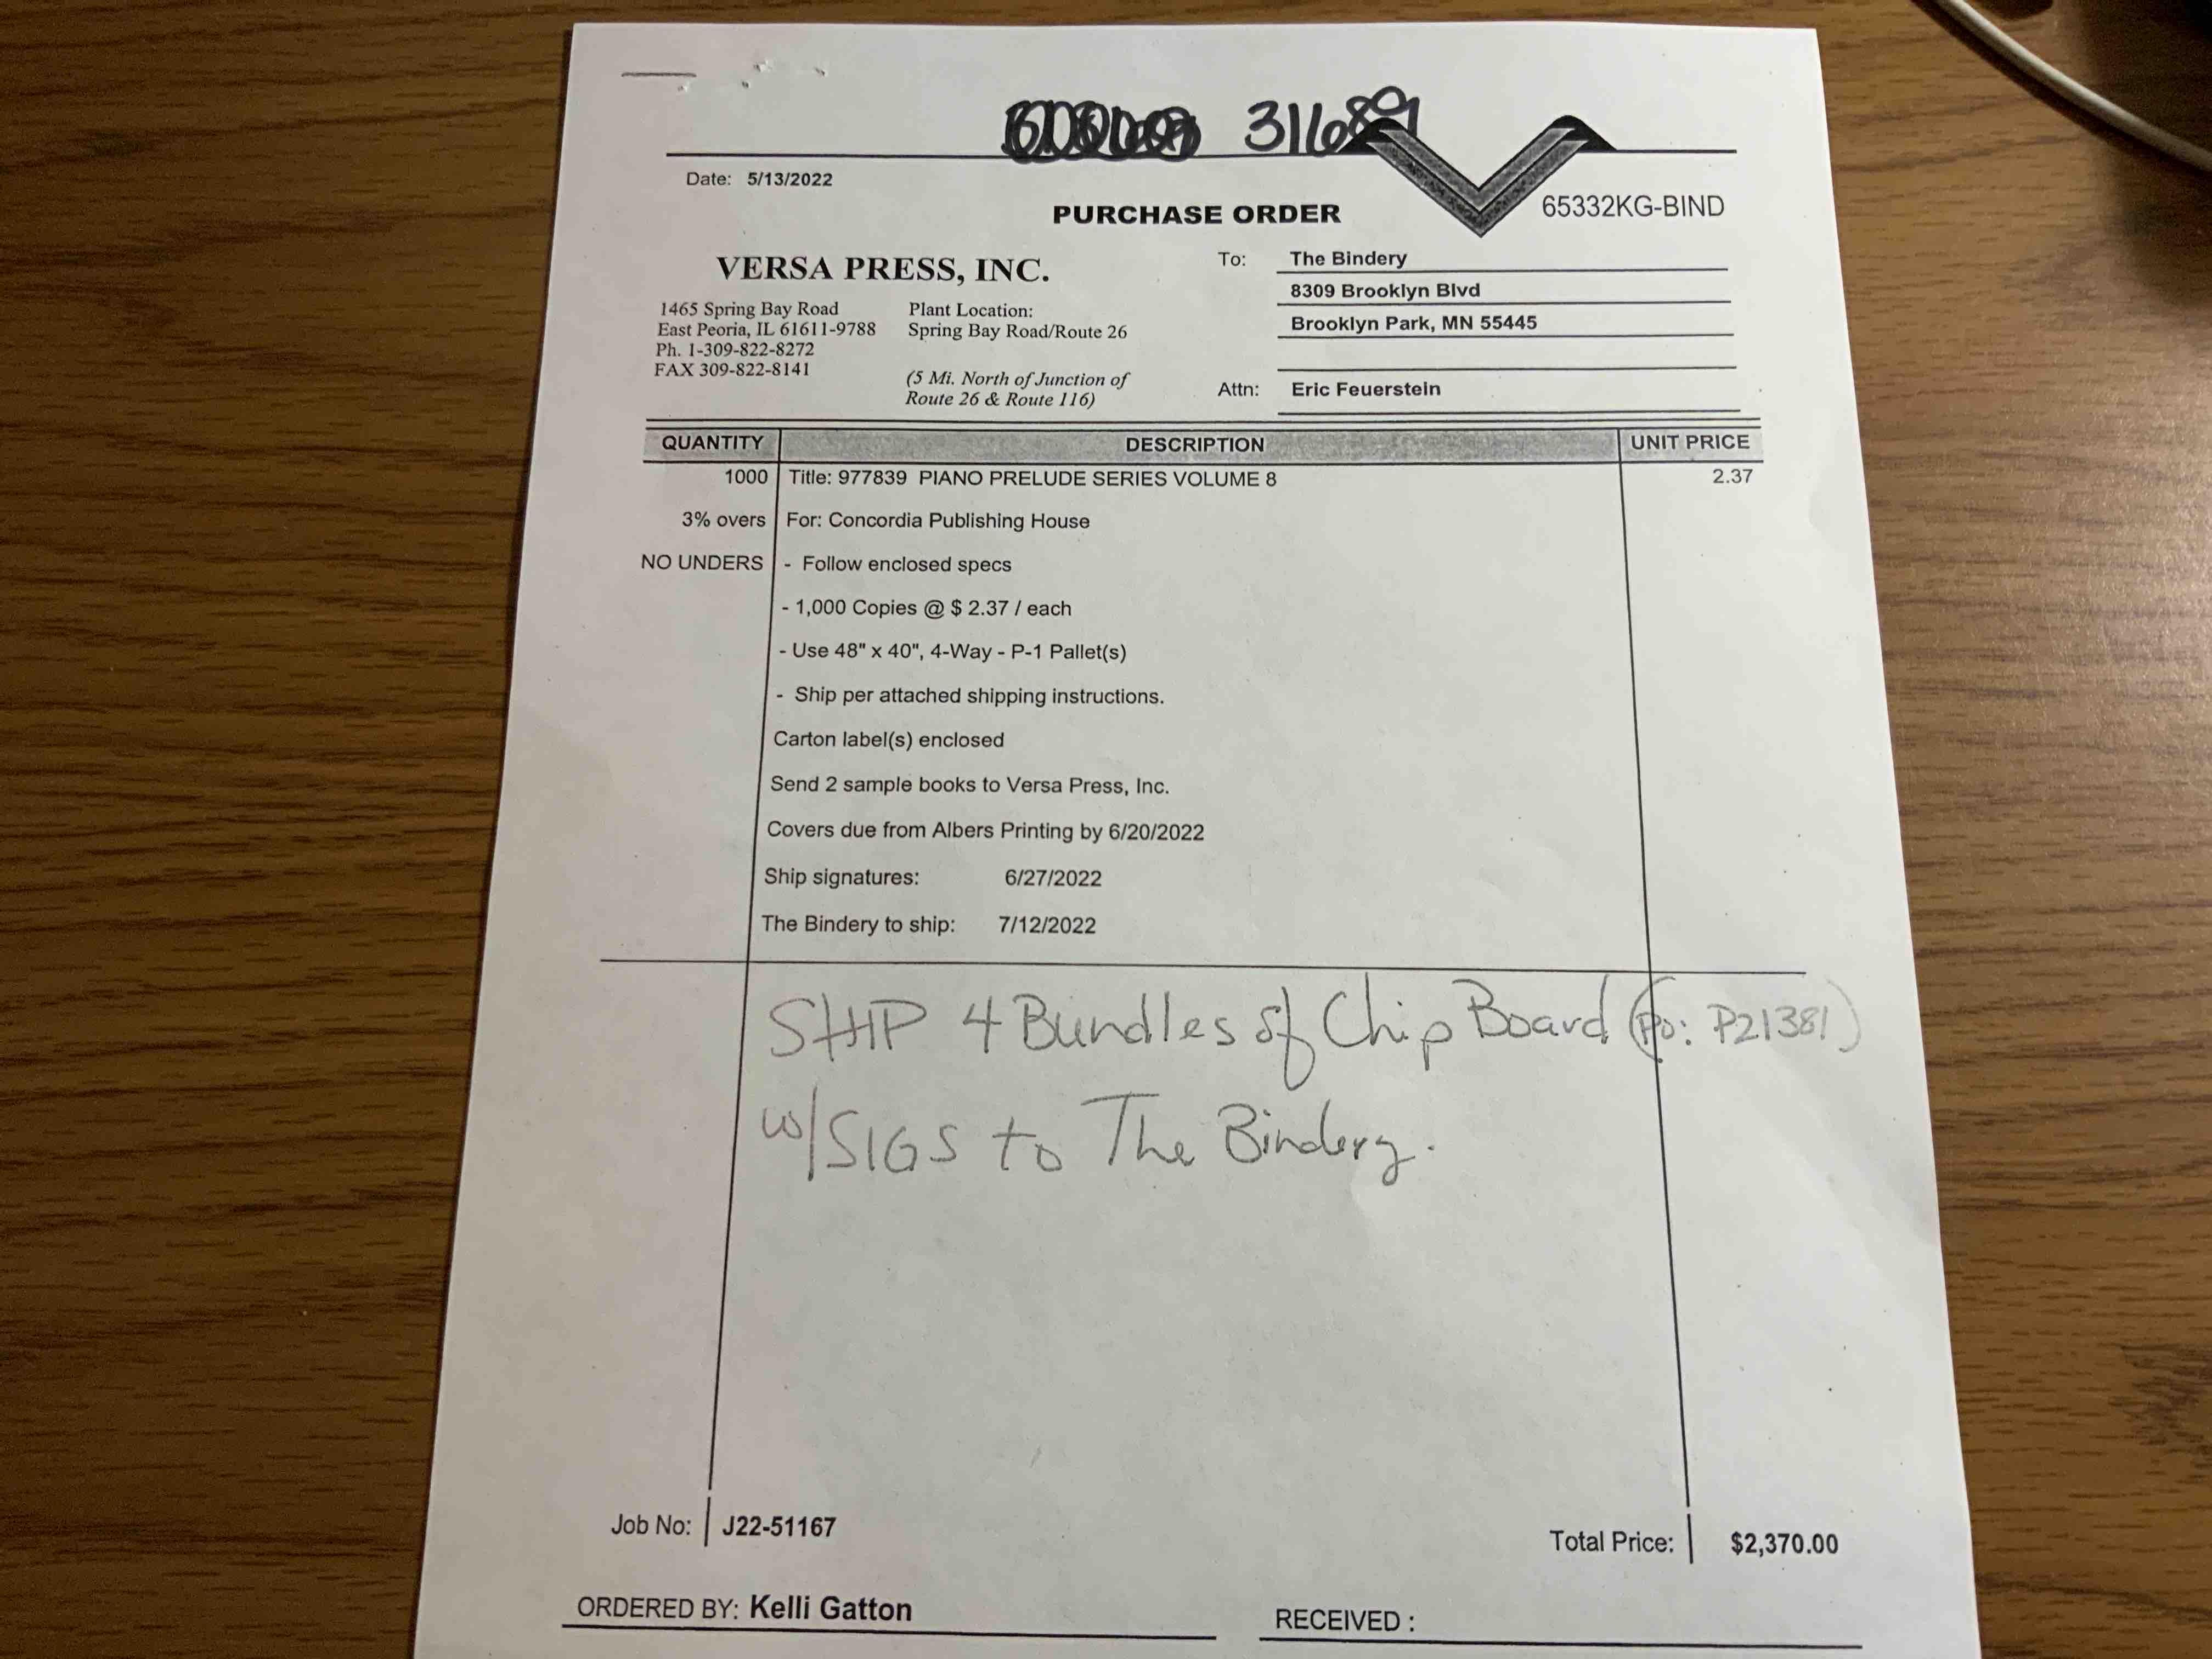 311689
Date: 5/13/2022
PURCHASE ORDER
65332KG-BIND
VERSA PRESS, INC.
1465 Spring Bay Road
East Peoria, IL 61611-9788
Ph. 1-309-822-8272
FAX 309-822-8141
Plant Location:
Spring Bay Road/Route 26
(5 Mi. North of Junction of
Route 26 & Route 116)
To: The Bindery
8309 Brooklyn Blvd
Brooklyn Park, MN 55445
Attn: Eric Feuerstein
QUANTITY DESCRIPTION UNIT PRICE
1000 Title: 977839 PIANO PRELUDE SERIES VOLUME 8 2.37
3% overs For: Concordia Publishing House
NO UNDERS - Follow enclosed specs
- 1,000 Copies @ $ 2.37 / each
- Use 48" x 40", 4-Way - P-1 Pallet(s)
- Ship per attached shipping instructions.
Carton label(s) enclosed
Send 2 sample books to Versa Press, Inc.
Covers due from Albers Printing by 6/20/2022
Ship signatures: 6/27/2022
The Bindery to ship: 7/12/2022
SHIP 4 Bundles of Chip Board (PO: P21381)
w/SIGS to The Bindery.
Job No: J22-51167
Total Price: $2,370.00
ORDERED BY: Kelli Gatton
RECEIVED :